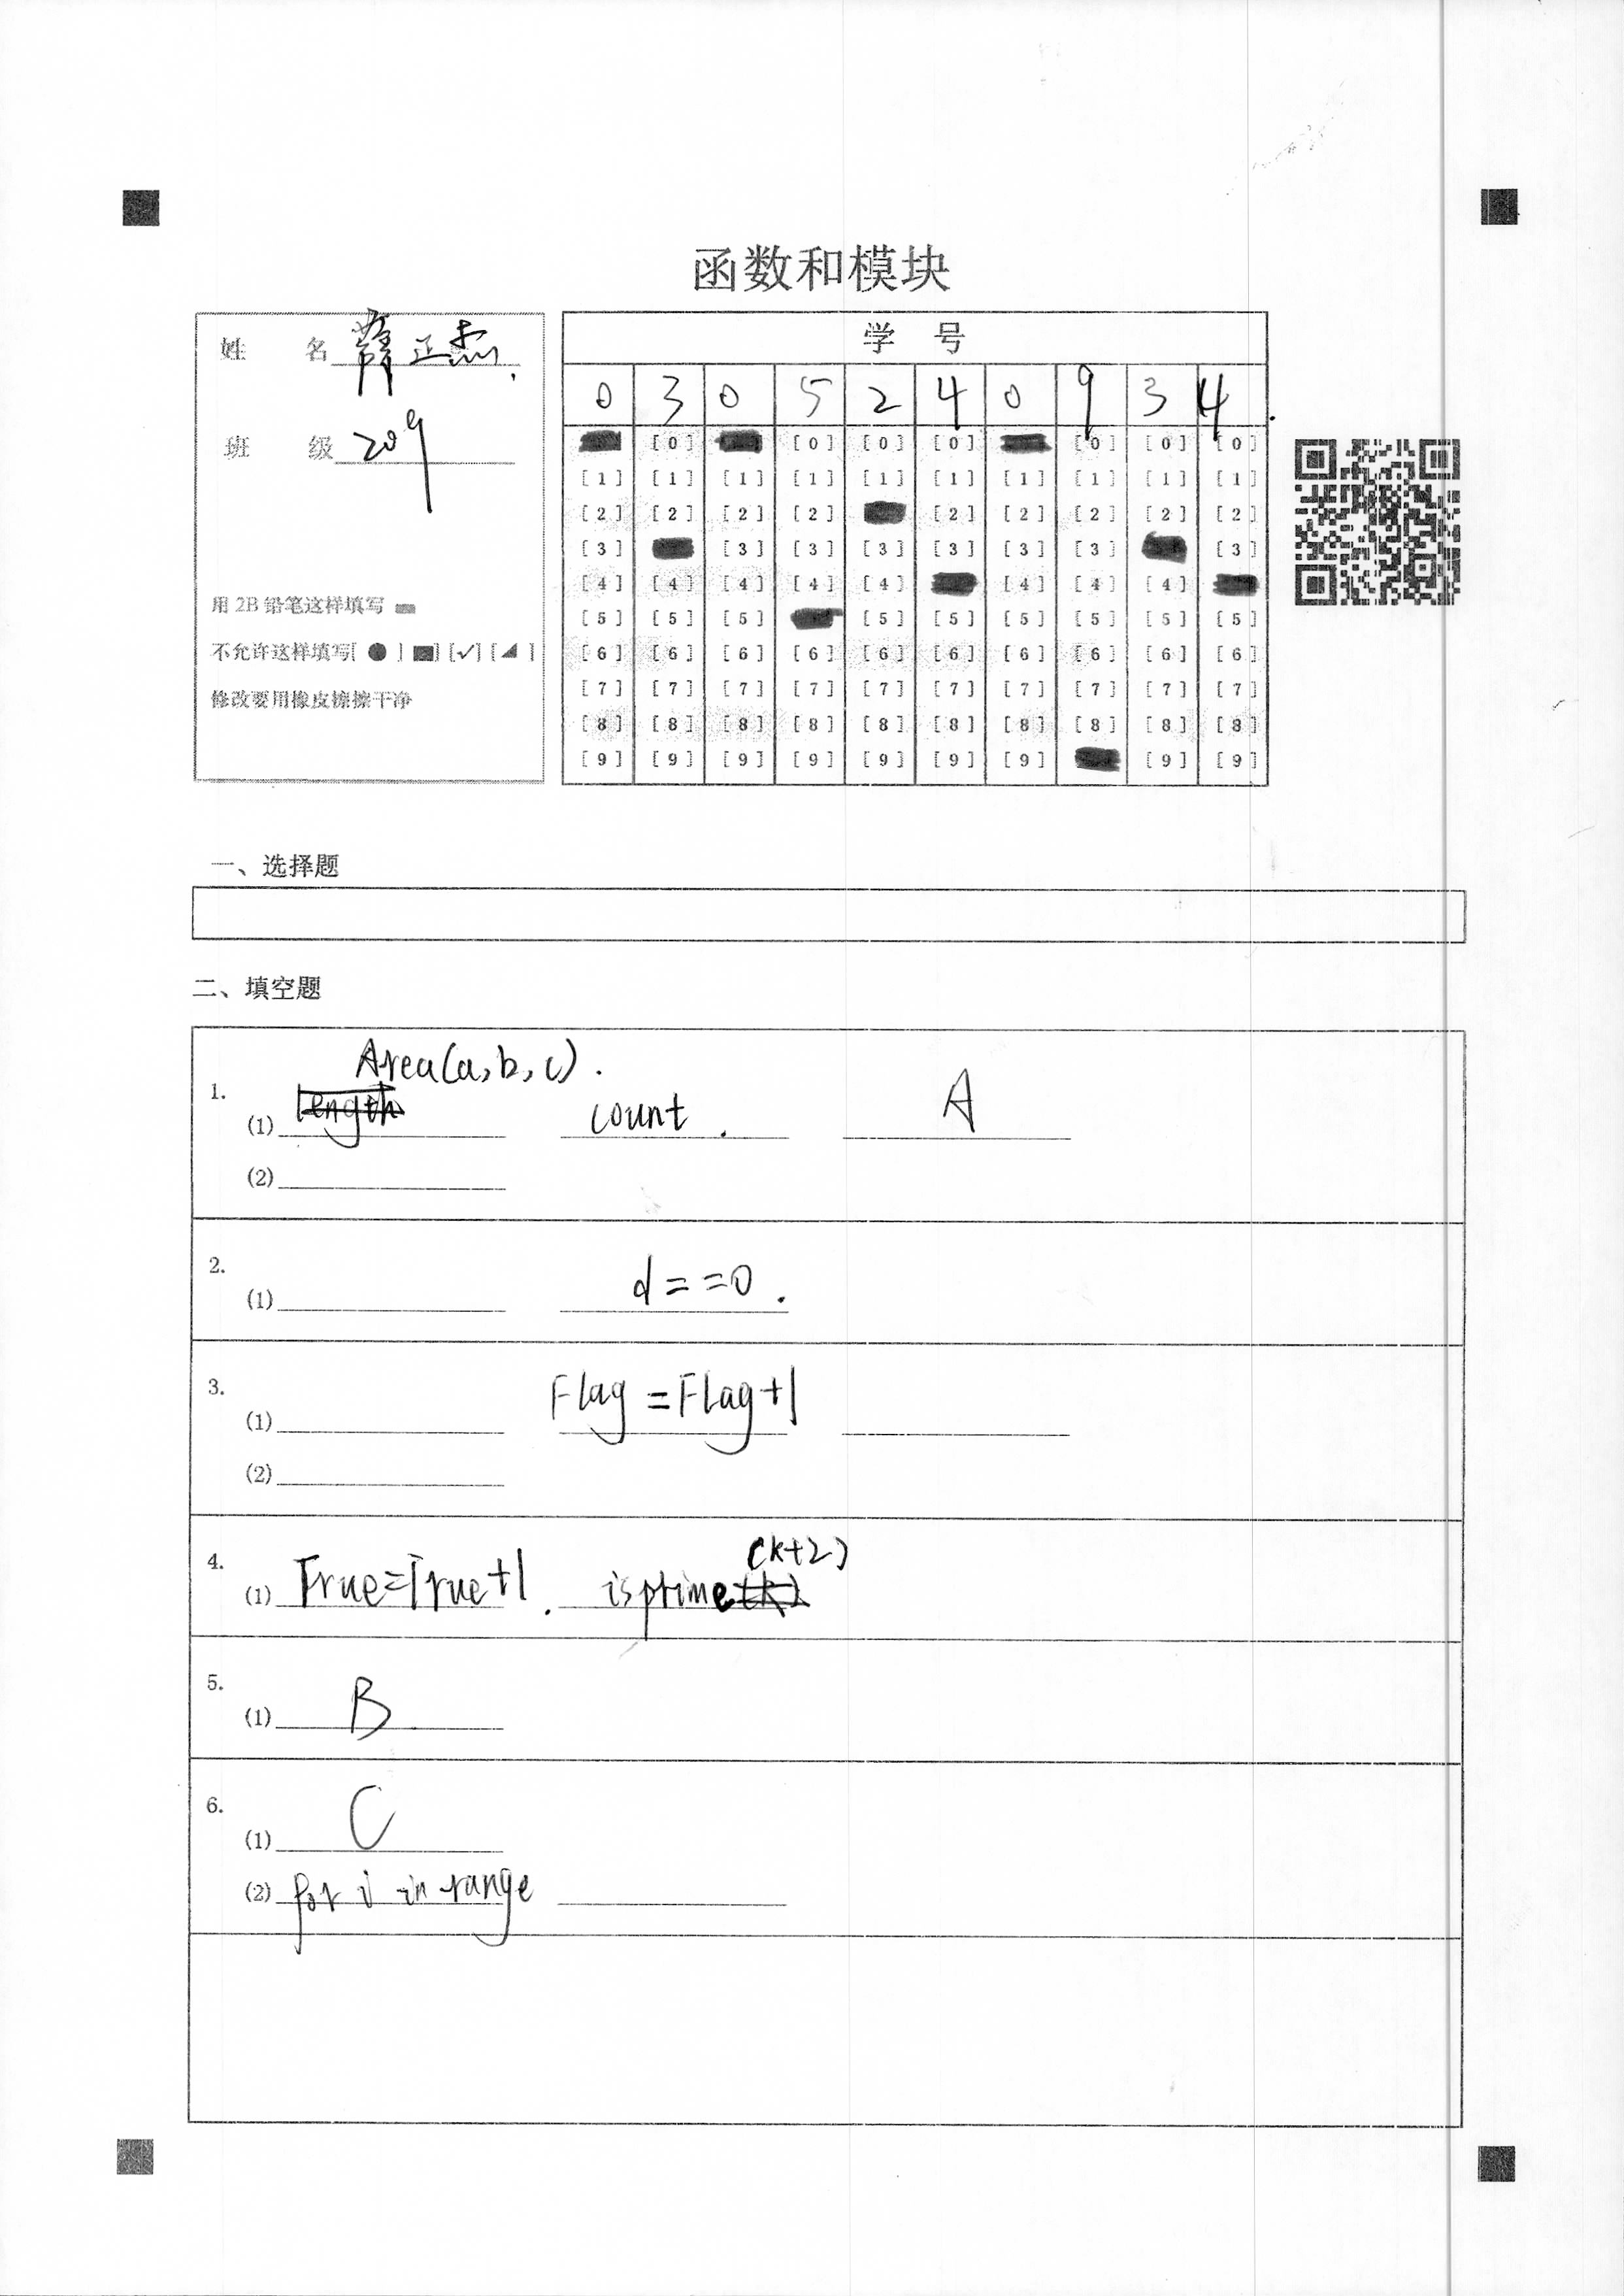 函数和模块
姓 名 薛正杰.
班 级 209
用 2B 铅笔这样填写
不允许这样填写[ ● ] [■] [✓] [◢ ]
修改要用橡皮擦擦干净
学 号
0 3 0 5 2 4 0 9 3 4.
[0] [0] [0] [0] [0] [0] [0]
[1] [1] [1] [1] [1] [1] [1] [1] [1] [1]
[2] [2] [2] [2] [2] [2] [2] [2] [2]
[3] [3] [3] [3] [3] [3] [3] [3]
[4] [4] [4] [4] [4] [4] [4] [4]
[5] [5] [5] [5] [5] [5] [5] [5] [5]
[6] [6] [6] [6] [6] [6] [6] [6] [6] [6]
[7] [7] [7] [7] [7] [7] [7] [7] [7] [7]
[8] [8] [8] [8] [8] [8] [8] [8] [8] [8]
[9] [9] [9] [9] [9] [9] [9] [9] [9]
一、选择题
二、填空题
Area(a,b,c).
1.
(1) length count. A
(2)
2.
(1) d==0.
3.
(1) Flag=Flag+1
(2)
4.
(k+2)
(1) True=True+1. isprime(k)
5.
(1) B
6.
(1) C
(2) for i in range